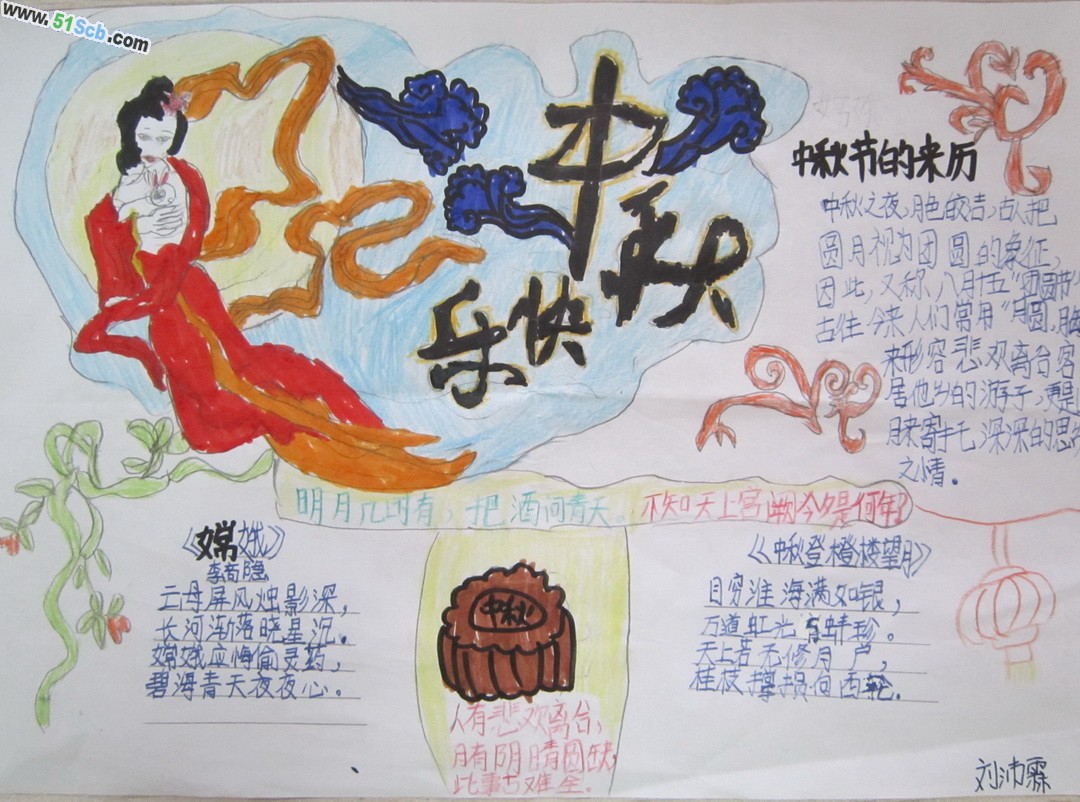 www.51Scb.com
中秋
快乐
中秋节的来历
中秋之夜，月色皎洁，古人把
圆月视为团圆的象征，
因此，又称八月十五"团圆节"
古往今来人们常用"月圆，月
来形容悲欢离合客
居他乡的游子，更是
月来寄托深深的思
之情。
明月几时有，把酒问青天。不知天上宫阙今夕是何年？
《嫦娥》
李商隐
云母屏风烛影深，
长河渐落晓星沉。
嫦娥应悔偷灵药，
碧海青天夜夜心。
中秋
人有悲欢离合，
月有阴晴圆缺，
此事古难全。
《中秋登橙楼望月》
目穷淮海满如银，
万道虹光育蜻珍。
天上若无修月户，
桂枝撑损向西轮。
刘沛霖